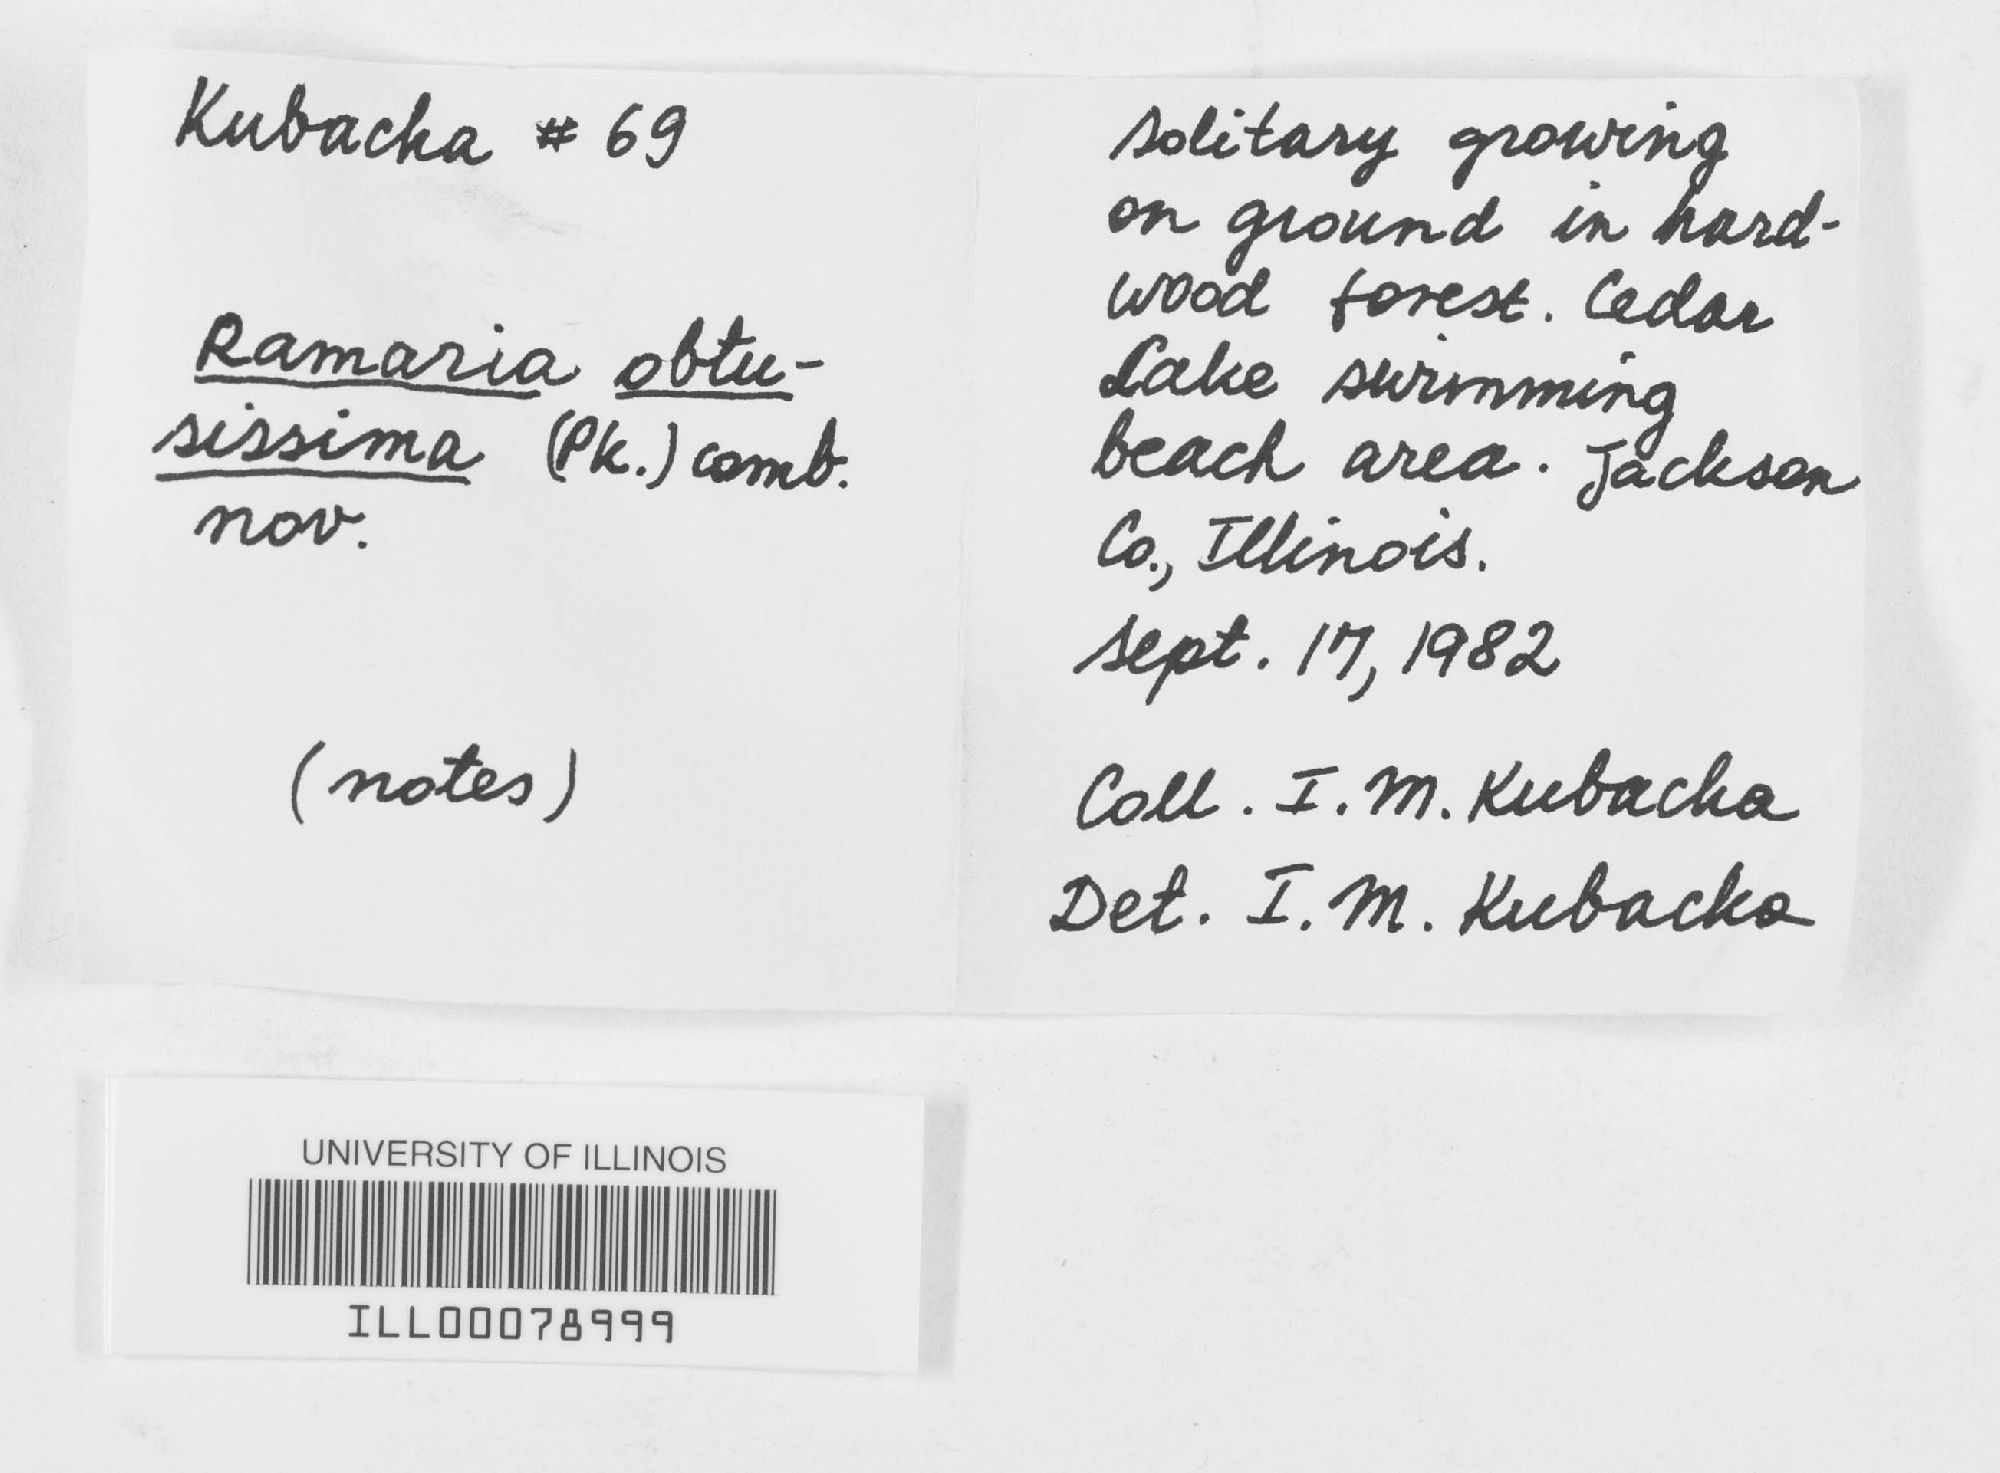 Kubacka # 69
Ramaria obtu-
sissima (Pk.) comb.
nov.
(notes)
solitary growing
on ground in hard-
wood forest. Cedar
Lake swimming
beach area. Jackson
Co., Illinois.
Sept. 17, 1982
Coll. I. M. Kubacka
Det. I. M. Kubacka
UNIVERSITY OF ILLINOIS
ILL00078999